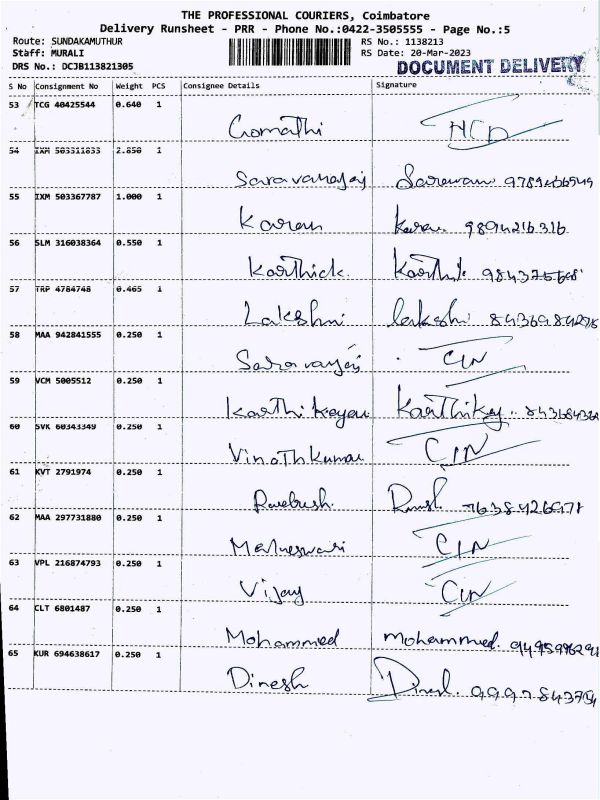 THE PROFESSIONAL COURIERS, Coimbatore
Delivery Runsheet - PRR - Phone No.:0422-3505555 - Page No.:5
Route: SUNDAKAMUTHUR RS No.: 1138213
Staff: MURALI RS Date: 20-Mar-2023
DRS No.: DCJB113821305 DOCUMENT DELIVERY
S No Consignment No Weight PCS Consignee Details Signature
53 TCG 40425544 0.640 1
Gomathi
54 IXM 503311833 2.850 1
55 IXM 503367787 1.000 1
Karan 9894216316
56 SLM 316038364 0.550 1
Karthick
57 TRP 4784748 0.465 1
Lakshmi
58 MAA 942841555 0.250 1
CIN
59 VCM 5005512 0.250 1
Karthikeyan
60 SVK 60343349 0.250 1
Vinothkumar CIN
61 KVT 2791974 0.250 1
7638426978
62 MAA 297731880 0.250 1
CIN
63 VPL 216874793 0.250 1
Vijay CIN
64 CLT 6801487 0.250 1
Mohammed mohammed.
65 KUR 694638617 0.250 1
Dinesh